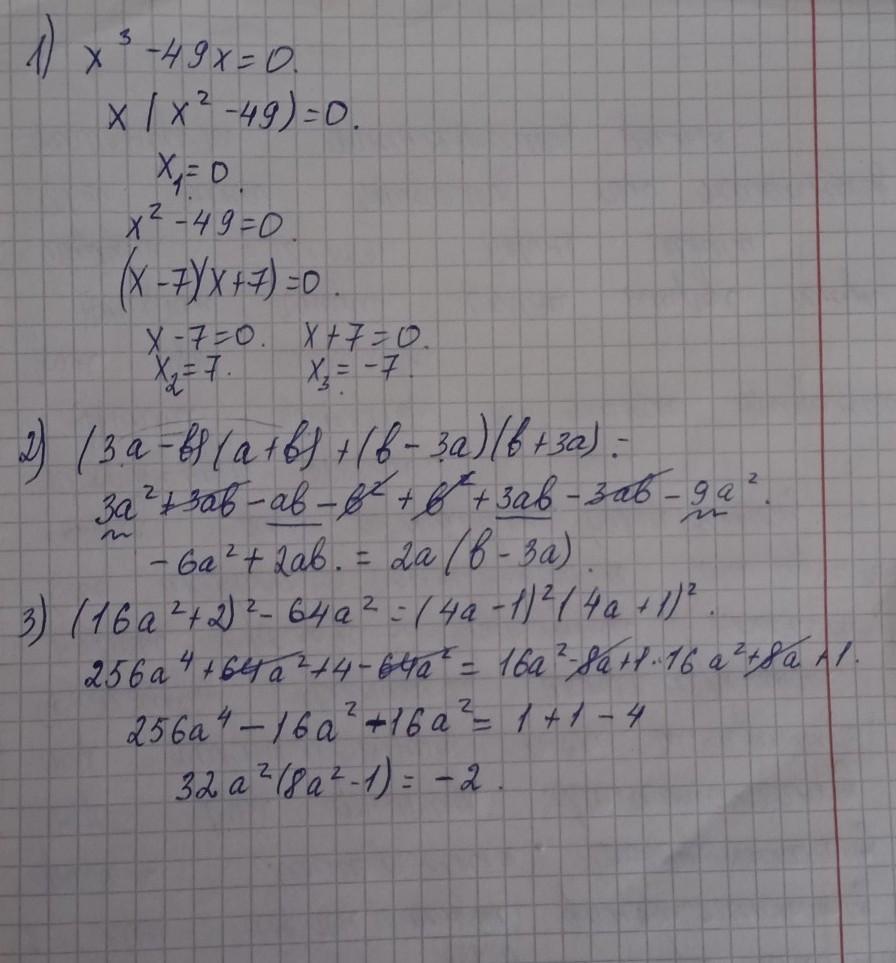 1) x³ - 49x = 0.
x(x² - 49) = 0.
x₁ = 0.
x² - 49 = 0.
(x - 7)(x + 7) = 0.
x - 7 = 0. x + 7 = 0.
x₂ = 7. x₃ = -7.
2) (3a - в)(a + в) + (в - 3a)(в + 3a) =
3a² + 3aв - aв - в² + в² + 3aв - 3aв - 9a².
-6a² + 2aв. = 2a(в - 3a).
3) (16a² + 2)² - 64a² = (4a - 1)²(4a + 1)².
256a⁴ + 64a² + 4 - 64a² = 16a² - 8a + 1 · 16a² + 8a + 1.
256a⁴ - 16a² - 16a² = 1 + 1 - 4
32a²(8a² - 1) = -2.